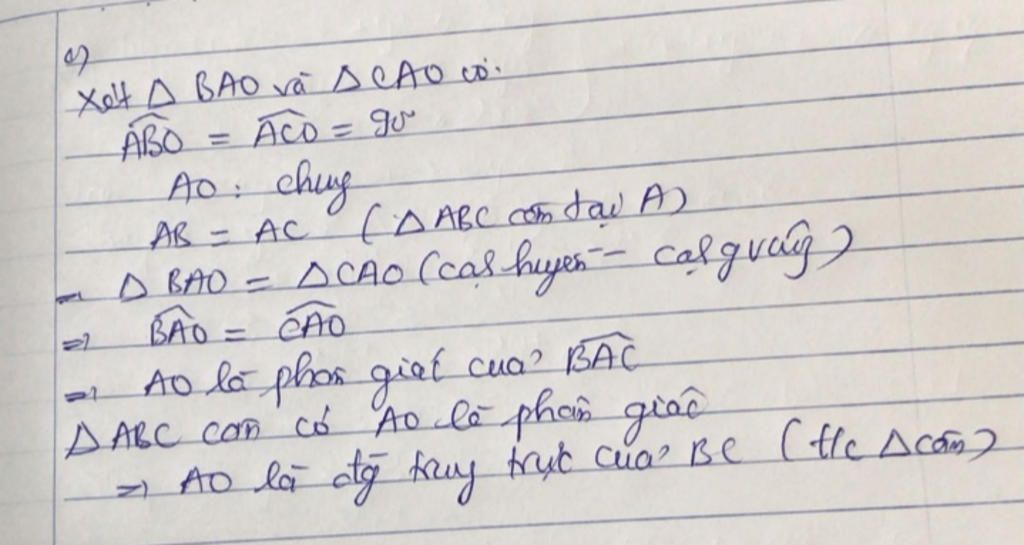 c)
Xét Δ BAO và Δ CAO có:
ABO = ACO = 90°
AO : chung
AB = AC (Δ ABC cân tại A)
⇒ Δ BAO = Δ CAO (cạnh huyền - cạnh góc vuông)
⇒ BAO = CAO
⇒ AO là phân giác của BAC
Δ ABC cân có AO là phân giác
⇒ AO là đg trung trực của BC (t/c Δ cân)